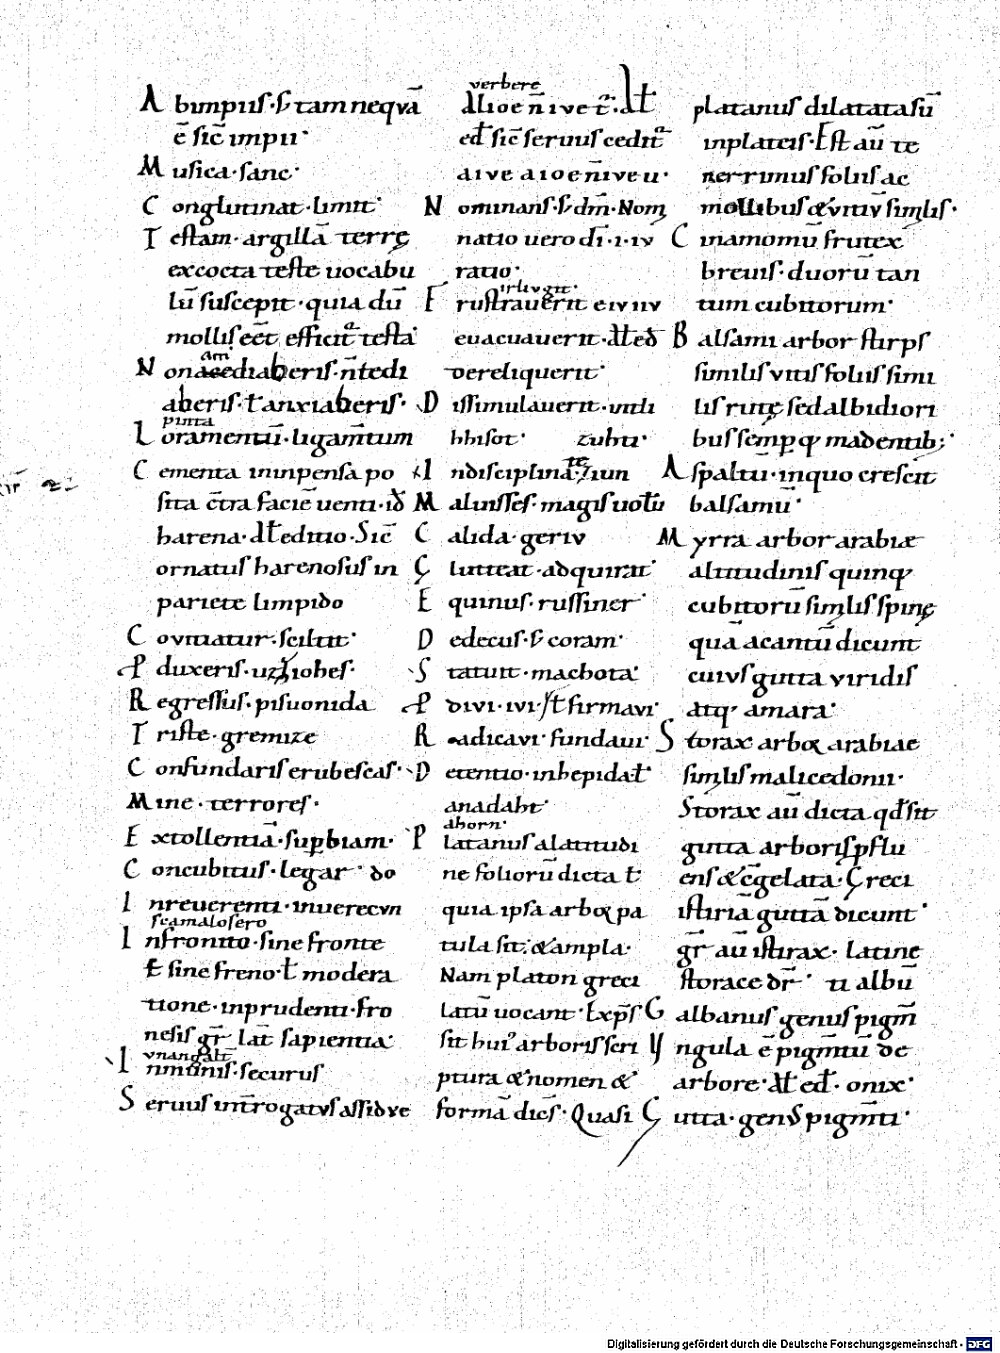 A bimpiis· s̄ tam neqvā
ē sic̄ impii·
M usica· sanc·
C onglutinat· limit·
T estam· argillā terrę
excocta teste uocabu
lū suscepit· quia dū
mollis eet̄ efficit̄ testa·
am
N onacediaberis· n̄ tedi
aberis· ł anxiaberis·
pinta
L oramentū· ligam̄tum
C ementa ininpensa po
sita c̄tra faciē uenti· id
harena· ałt editio· Sic̄
ornatus harenosus in
pariete limpido
C ovtuatur· sciltit·
P duxeris· uzziohes·
R egressus· pisuonida
T riste· gremize
C onfundaris erubescas·
M ine· terrores·
E xtollentiā· supbiam·
C oncubitus· legar· do
I nreuerenti· inuerecvn
scamalosero
I nfronito· sine fronte
ł sine freno· ł modera
tione· inprudenti· fro
nesis gr̄ lat̄ sapientia·
vnangalt
I nmunis· securus
S eruus int̄rogatvs assidve
verbere
dlioen̄ivet̄· ałt
ed̄ sic̄ seruus cedit̄
aive aioen̄iveu·
N ominans· s̄ dm̄· Nom
natio uero dī· i· iv
ratio·
irlivgit·
F rustrauerit eivnv
euacuauerit· ałt ed̄
dereliquerit·
D issimulauerit· vuili
hhisot· zuhti·
te
I ndisciplina· ziun
M aluisses· magis uoł
C alida· geriv
C lutteat· adquirat·
E quinus· russiner·
D edecus· s̄ coram·
S tatuit· machota·
P divi· ivi· sł firmavi·
R adicavi· fundaui·
D etentio· inhepidał·
anadaht·
ahorn·
P latanus a latitudi
ne foliorū dicta ł
quia ipsa arbor pa
tula sit· & ampla·
Nam platon greci
latū uocant· Exp̄s
sit hui' arboris scri
ptura & nomen &
formā dic̄s· Quasi
platanus dilatata sū
inplateis· Est aū te
nerrimus foliis ac
mollibus & vitiv similis·
C inamomū frutex
breuis· duorū tan
tum cubitorum·
B alsami arbor stirps
similis vitis foliis simi
lis rutę sed albidiori
bus semp q madentib;·
A spaltū· inquo crescit
balsamū·
M yrra arbor arabiæ
altitudinis quinq
cubitorū similis spinę
quā acantū dicunt
cuivs gutta viridis
atq' amara·
S torax arbor arabiae
similis malicedonii·
Storax aū dicta qd̄ sit
gutta arboris pflu
ens & c̄gelata· Greci
istiriā guttā dicunt·
gr̄ aū istirax· latine
storace dr̄· ti albū
G albanus genus pigm̄
U ngula ē pigm̄tū de
arbore· ałt ed̄· onix·
G utta· genus pigm̄ti·
Digitalisierung gefördert durch die Deutsche Forschungsgemeinschaft - DFG